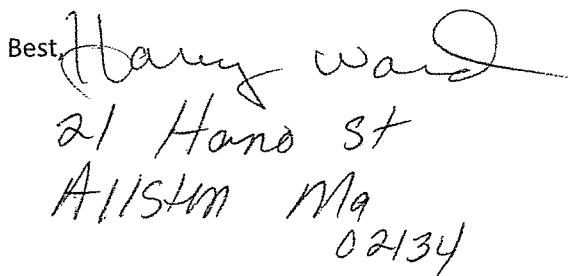 Best, Harry Ward
21 Hano St
Allston Ma
02134